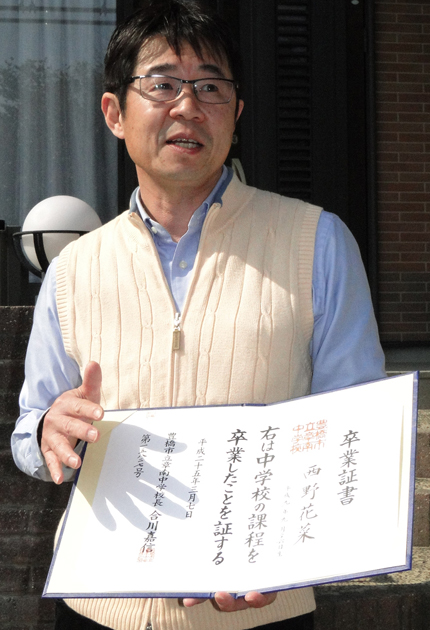 卒業証書
西野花菜
右は中学校の課程を
卒業したことを証する
平成二十五年三月七日
豊橋市立章南中学校長 合川嘉信